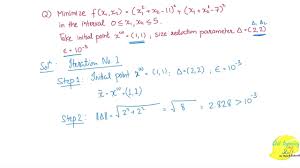 Q) Minimize f(x₁,x₂) = (x₁²+x₂-11)² + (x₁+x₂²-7)²
in the interval 0≤x₁,x₂≤5.
Δ₁ Δ₂
Take initial point x⁽⁰⁾=(1,1), size reduction parameter Δ=(2,2)
ε=10⁻³
Solⁿ: Iteration No 1
Step 1: Initial point x⁽⁰⁾=(1,1), Δ=(2,2), ε=10⁻³
x̄=x⁽⁰⁾=(1,1)
Step 2: ‖Δ‖=√2²+2² = √8 = 2.828 > 10⁻³